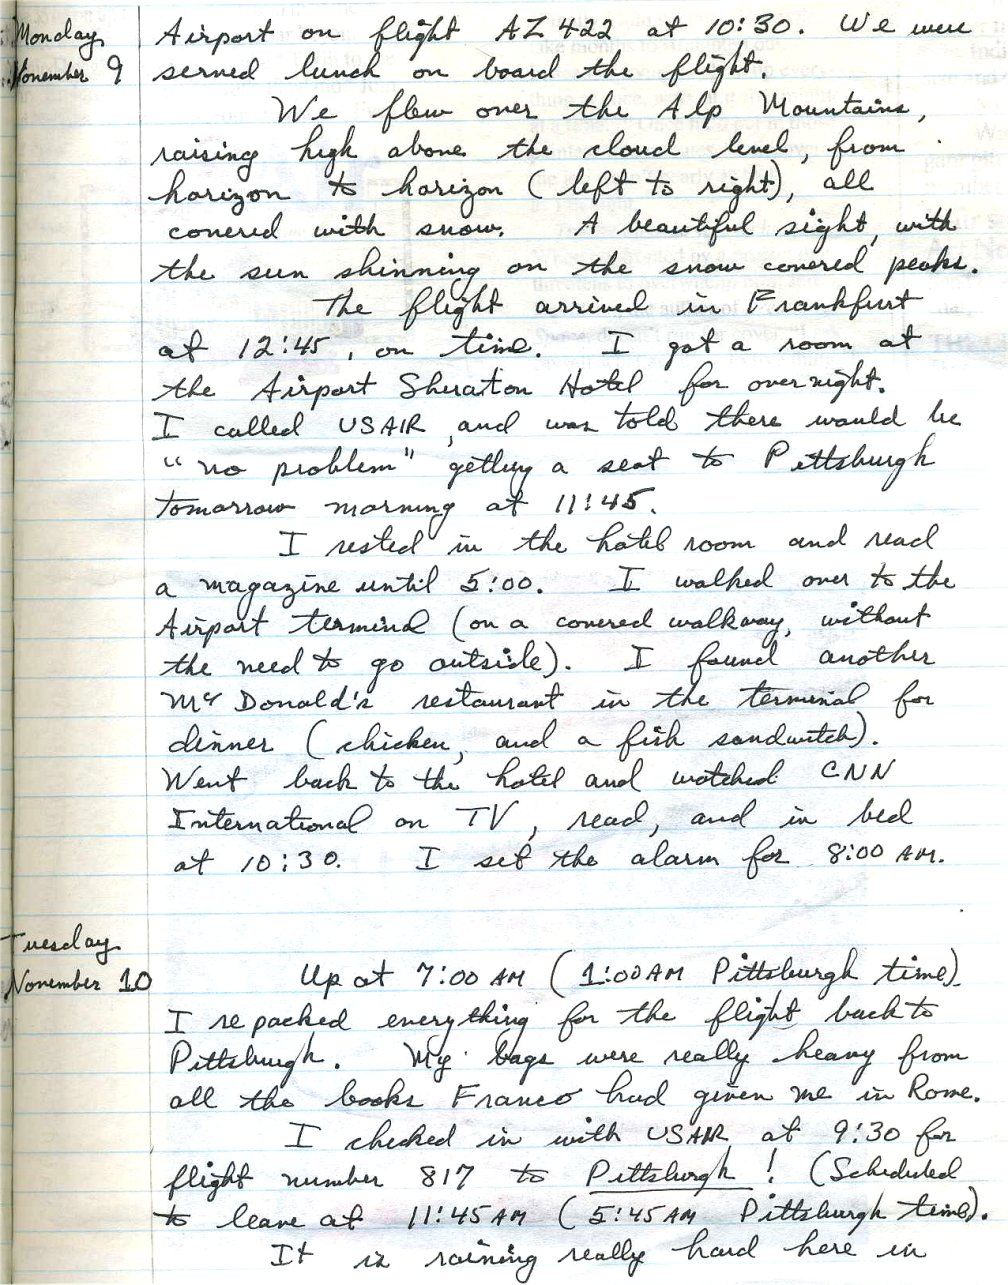 Monday
November 9
Airport on flight AZ 422 at 10:30. We were
served lunch on board the flight.
We flew over the Alp Mountains,
raising high above the cloud level, from
horizon to horizon (left to right), all
covered with snow. A beautiful sight, with
the sun shinning on the snow covered peaks.
The flight arrived in Frankfurt
at 12:45, on time. I got a room at
the Airport Sheraton Hotel for overnight.
I called USAIR, and was told there would be
"no problem" getting a seat to Pittsburgh
tomorrow morning at 11:45.
I rested in the hotel room and read
a magazine until 5:00. I walked over to the
Airport terminal (on a covered walkway, without
the need to go outside). I found another
McDonald's restaurant in the terminal for
dinner (chicken, and a fish sandwitch).
Went back to the hotel and watched CNN
International on TV, read, and in bed
at 10:30. I set the alarm for 8:00 AM.
Tuesday
November 10
Up at 7:00 AM (1:00 AM Pittsburgh time).
I repacked everything for the flight back to
Pittsburgh. My bags were really heavy from
all the books Franco had given me in Rome.
I checked in with USAIR at 9:30 for
flight number 817 to Pittsburgh! (Scheduled
to leave at 11:45 AM (5:45 AM Pittsburgh time).
It is raining really hard here in